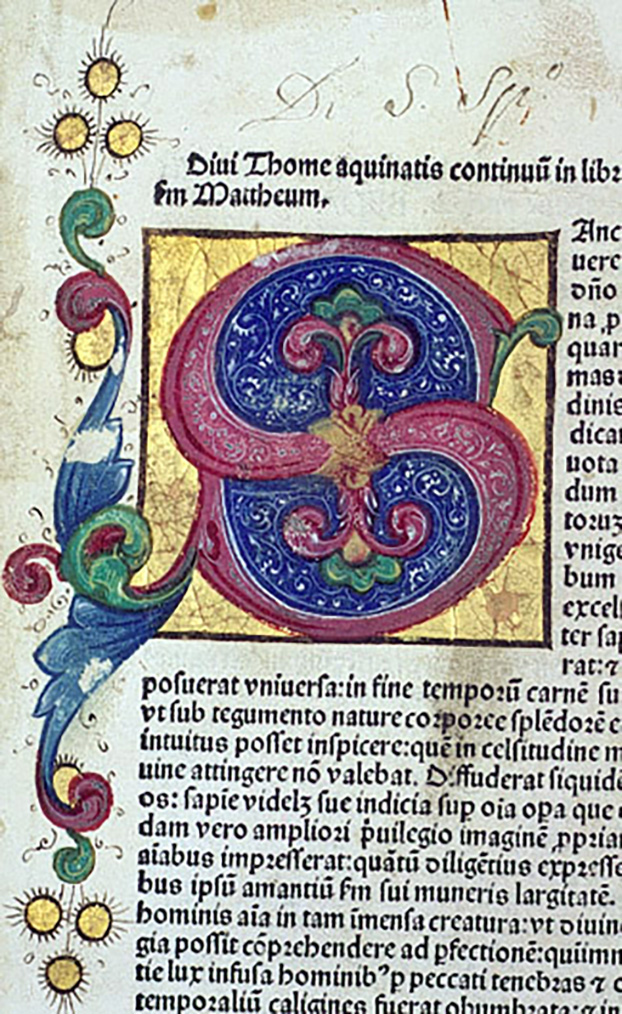 Di S. Spº
Diui Thome aquinatis continuū in libr
ſm Mattheum.
S
Anc
uere
dño
na,p
quar
mas
dinis
dicat
uota
dum
toruʒ
vnige
bum
excelſ
ter ſap
rat:⁊
poſuerat vniuerſa:in fine temporū carnē ſu
vt ſub tegumento nature corporee ſplēdorē c
intuitus poſſet inſpicere:quē in celſitudine m
uine attingere nō valebat. Diffuderat ſiquidē
os: ſapie videlʒ ſue indicia ſup oīa opa que
dam vero ampliori p̄uilegio imaginē ꝓpriam
aīabus impreſſerat:quātū diligētius expreſſe
bus ipſū amantiū ſm ſui muneris largitatē.
hominis aīa in tam īmenſa creatura:vt diuin
gia poſſit cōprehendere ad pfectionē:quiimm
tie lux infuſa hominibꝰ p peccati tenebras ⁊ c
temporaliū caligines fuerat obumbrata:⁊ in